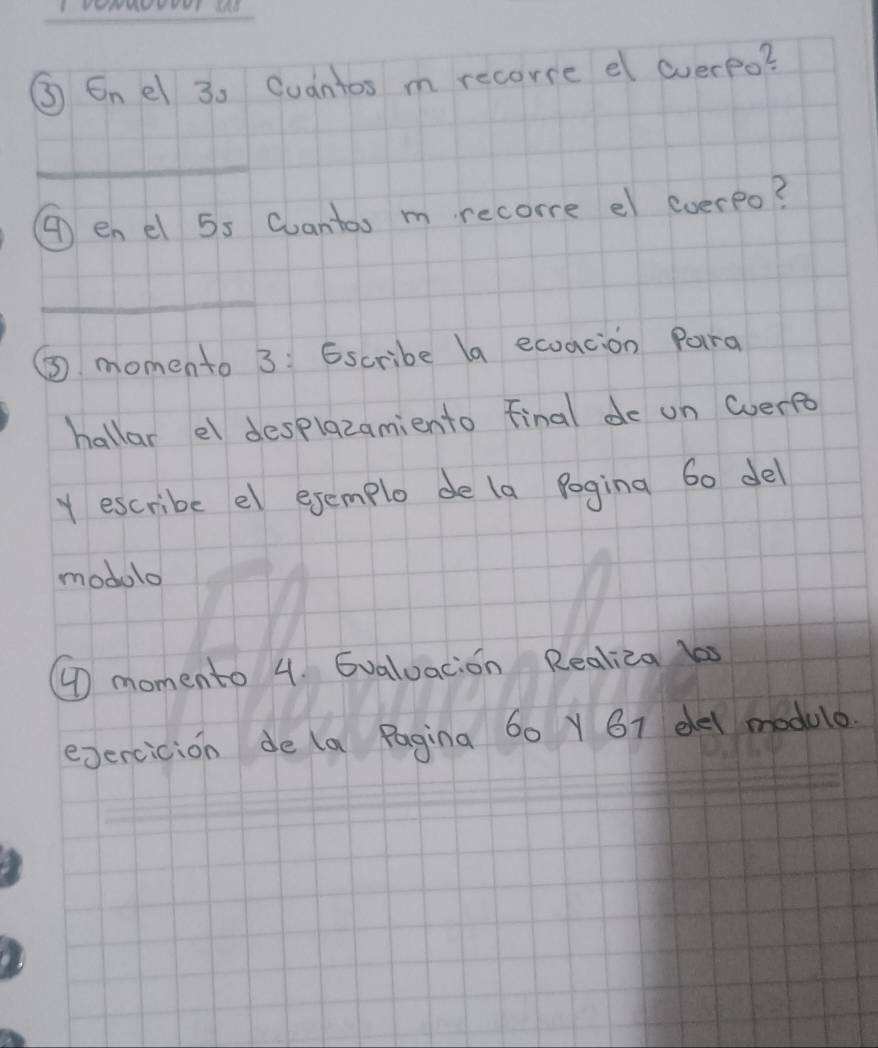 ③ En el 3s Cuántos m recorre el cuerpo?
④ en el 5s Cuantos m recorre el cuerpo?
③. momento 3: Escribe la ecuación Para
hallar el desplazamiento Final de un cuerpo
y escribe el ejemplo de la Pagina 60 del
modulo
④ momento 4. Evaluación Realiza los
ejercición de la Pagina 60 y 61 del modulo.